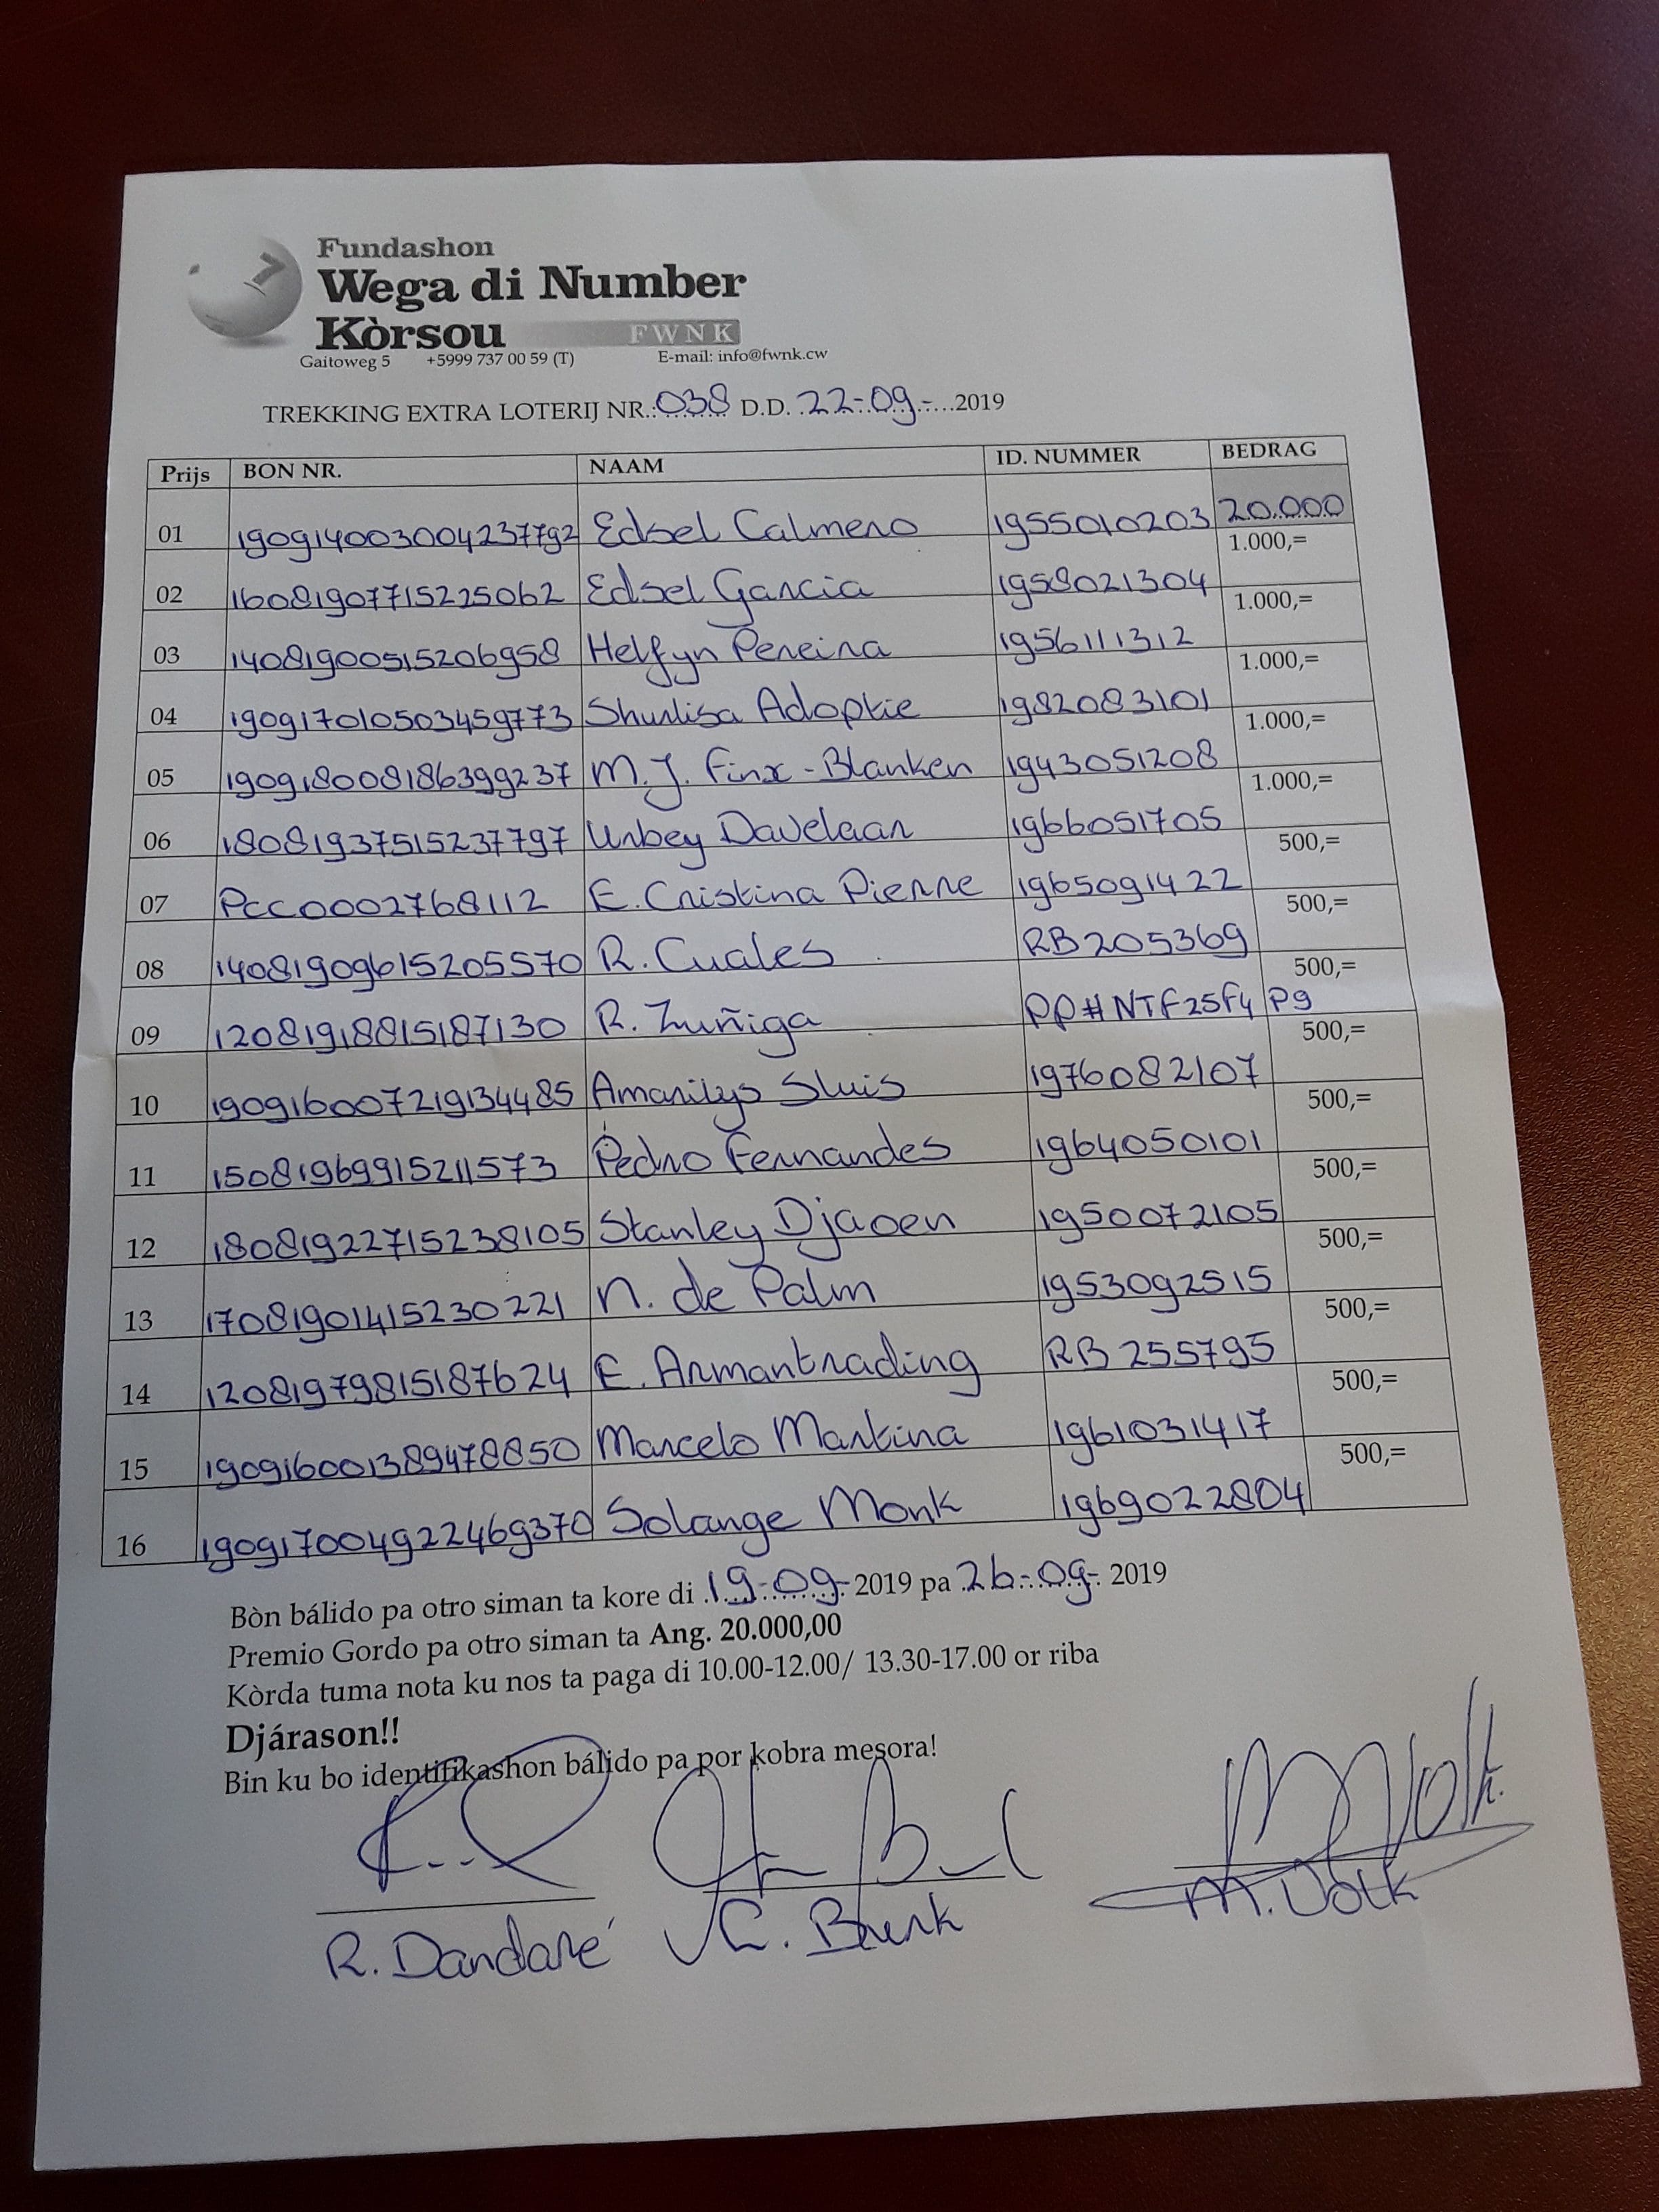 Fundashon
Wega di Number
Kòrsou FWNK
Gaitoweg 5 +5999 737 00 59 (T) E-mail: info@fwnk.cw
TREKKING EXTRA LOTERIJ NR.: 038 D.D. 22-09-2019
Prijs BON NR. NAAM ID. NUMMER BEDRAG
01 190914003004237792 Edsel Calmero 1955010203 20.000
02 16081907715225062 Edsel Garcia 1958021304 1.000,=
03 14081900515206958 Helfyn Pereira 1956111312 1.000,=
04 190917010503459773 Shurlisa Adoptie 1982083101 1.000,=
05 190918008186399237 M.J. Finx-Blanken 1943051208 1.000,=
06 18081937515237797 Urbey Davelaar 1966051705 1.000,=
07 PCC0002768112 E. Cristina Pierre 1965091422 500,=
08 14081909615205570 R. Cuales RB205369 500,=
09 12081918815187130 R. Zuñiga PP#NTF25F4P9 500,=
10 190916007219134485 Amarilys Sluis 1976082107 500,=
11 15081969915211573 Pedro Fernandes 1964050101 500,=
12 18081922715238105 Stanley Djaoen 1950072105 500,=
13 17081901415230221 N. de Palm 1953092515 500,=
14 12081979815187624 E. Armantrading RB 255795 500,=
15 190916001389478850 Marcelo Martina 1961031417 500,=
16 190917004922469370 Solange Monk 1969022804 500,=
Bòn bálido pa otro siman ta kore di 19-09-2019 pa 26-09-2019
Premio Gordo pa otro siman ta Ang. 20.000,00
Kòrda tuma nota ku nos ta paga di 10.00-12.00/ 13.30-17.00 or riba
Djárason!!
Bin ku bo identifikashon bálido pa por kobra mesora!
R. Dandaré C. Brunk M. Volk